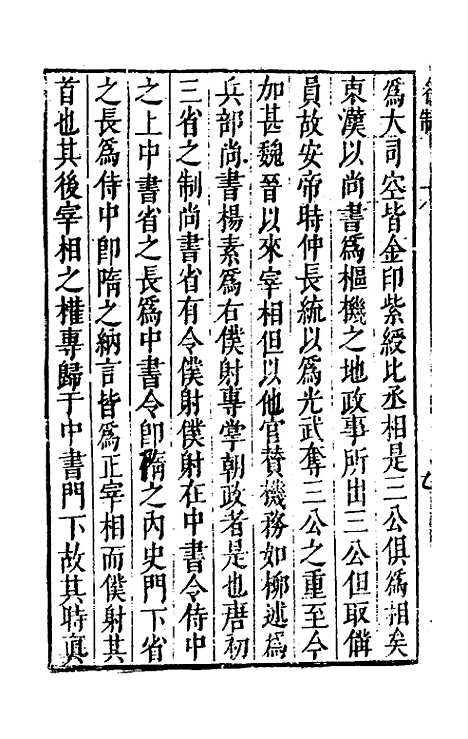 爲大司空皆金印紫綬比丞相是三公俱爲相矣
東漢以尚書爲樞機之地政事所出三公但取備
員故安帝時仲長統以爲光武奪三公之重至今
加甚魏晉以來宰相但以他官賛機務如柳述爲
兵部尚書楊素爲右僕射專掌朝政者是也唐初
三省之制尚書省有令僕射僕射在中書令侍中
之上中書省之長爲中書令卽隋之内史門下省
之長爲侍中卽隋之納言皆爲正宰相而僕射其
首也其後宰相之權專歸于中書門下故其時眞